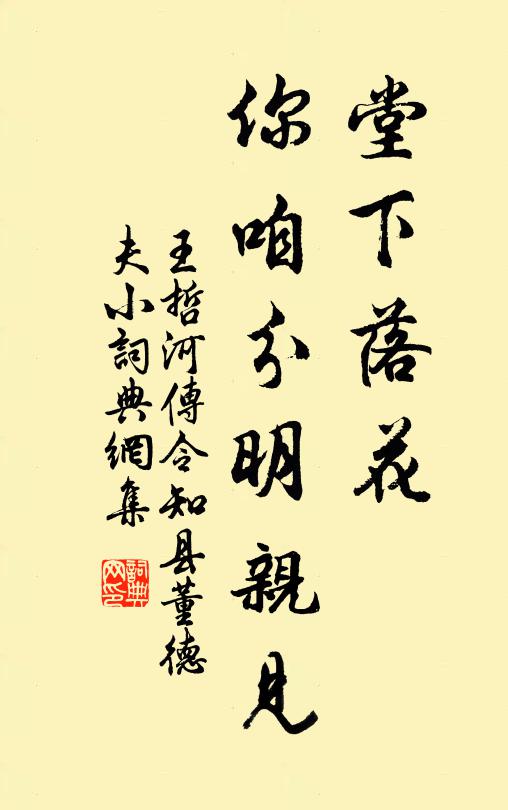 堂下落花
你咱分明親見
王哲河傳令知县董德
夫小詞典網集
詞典网印